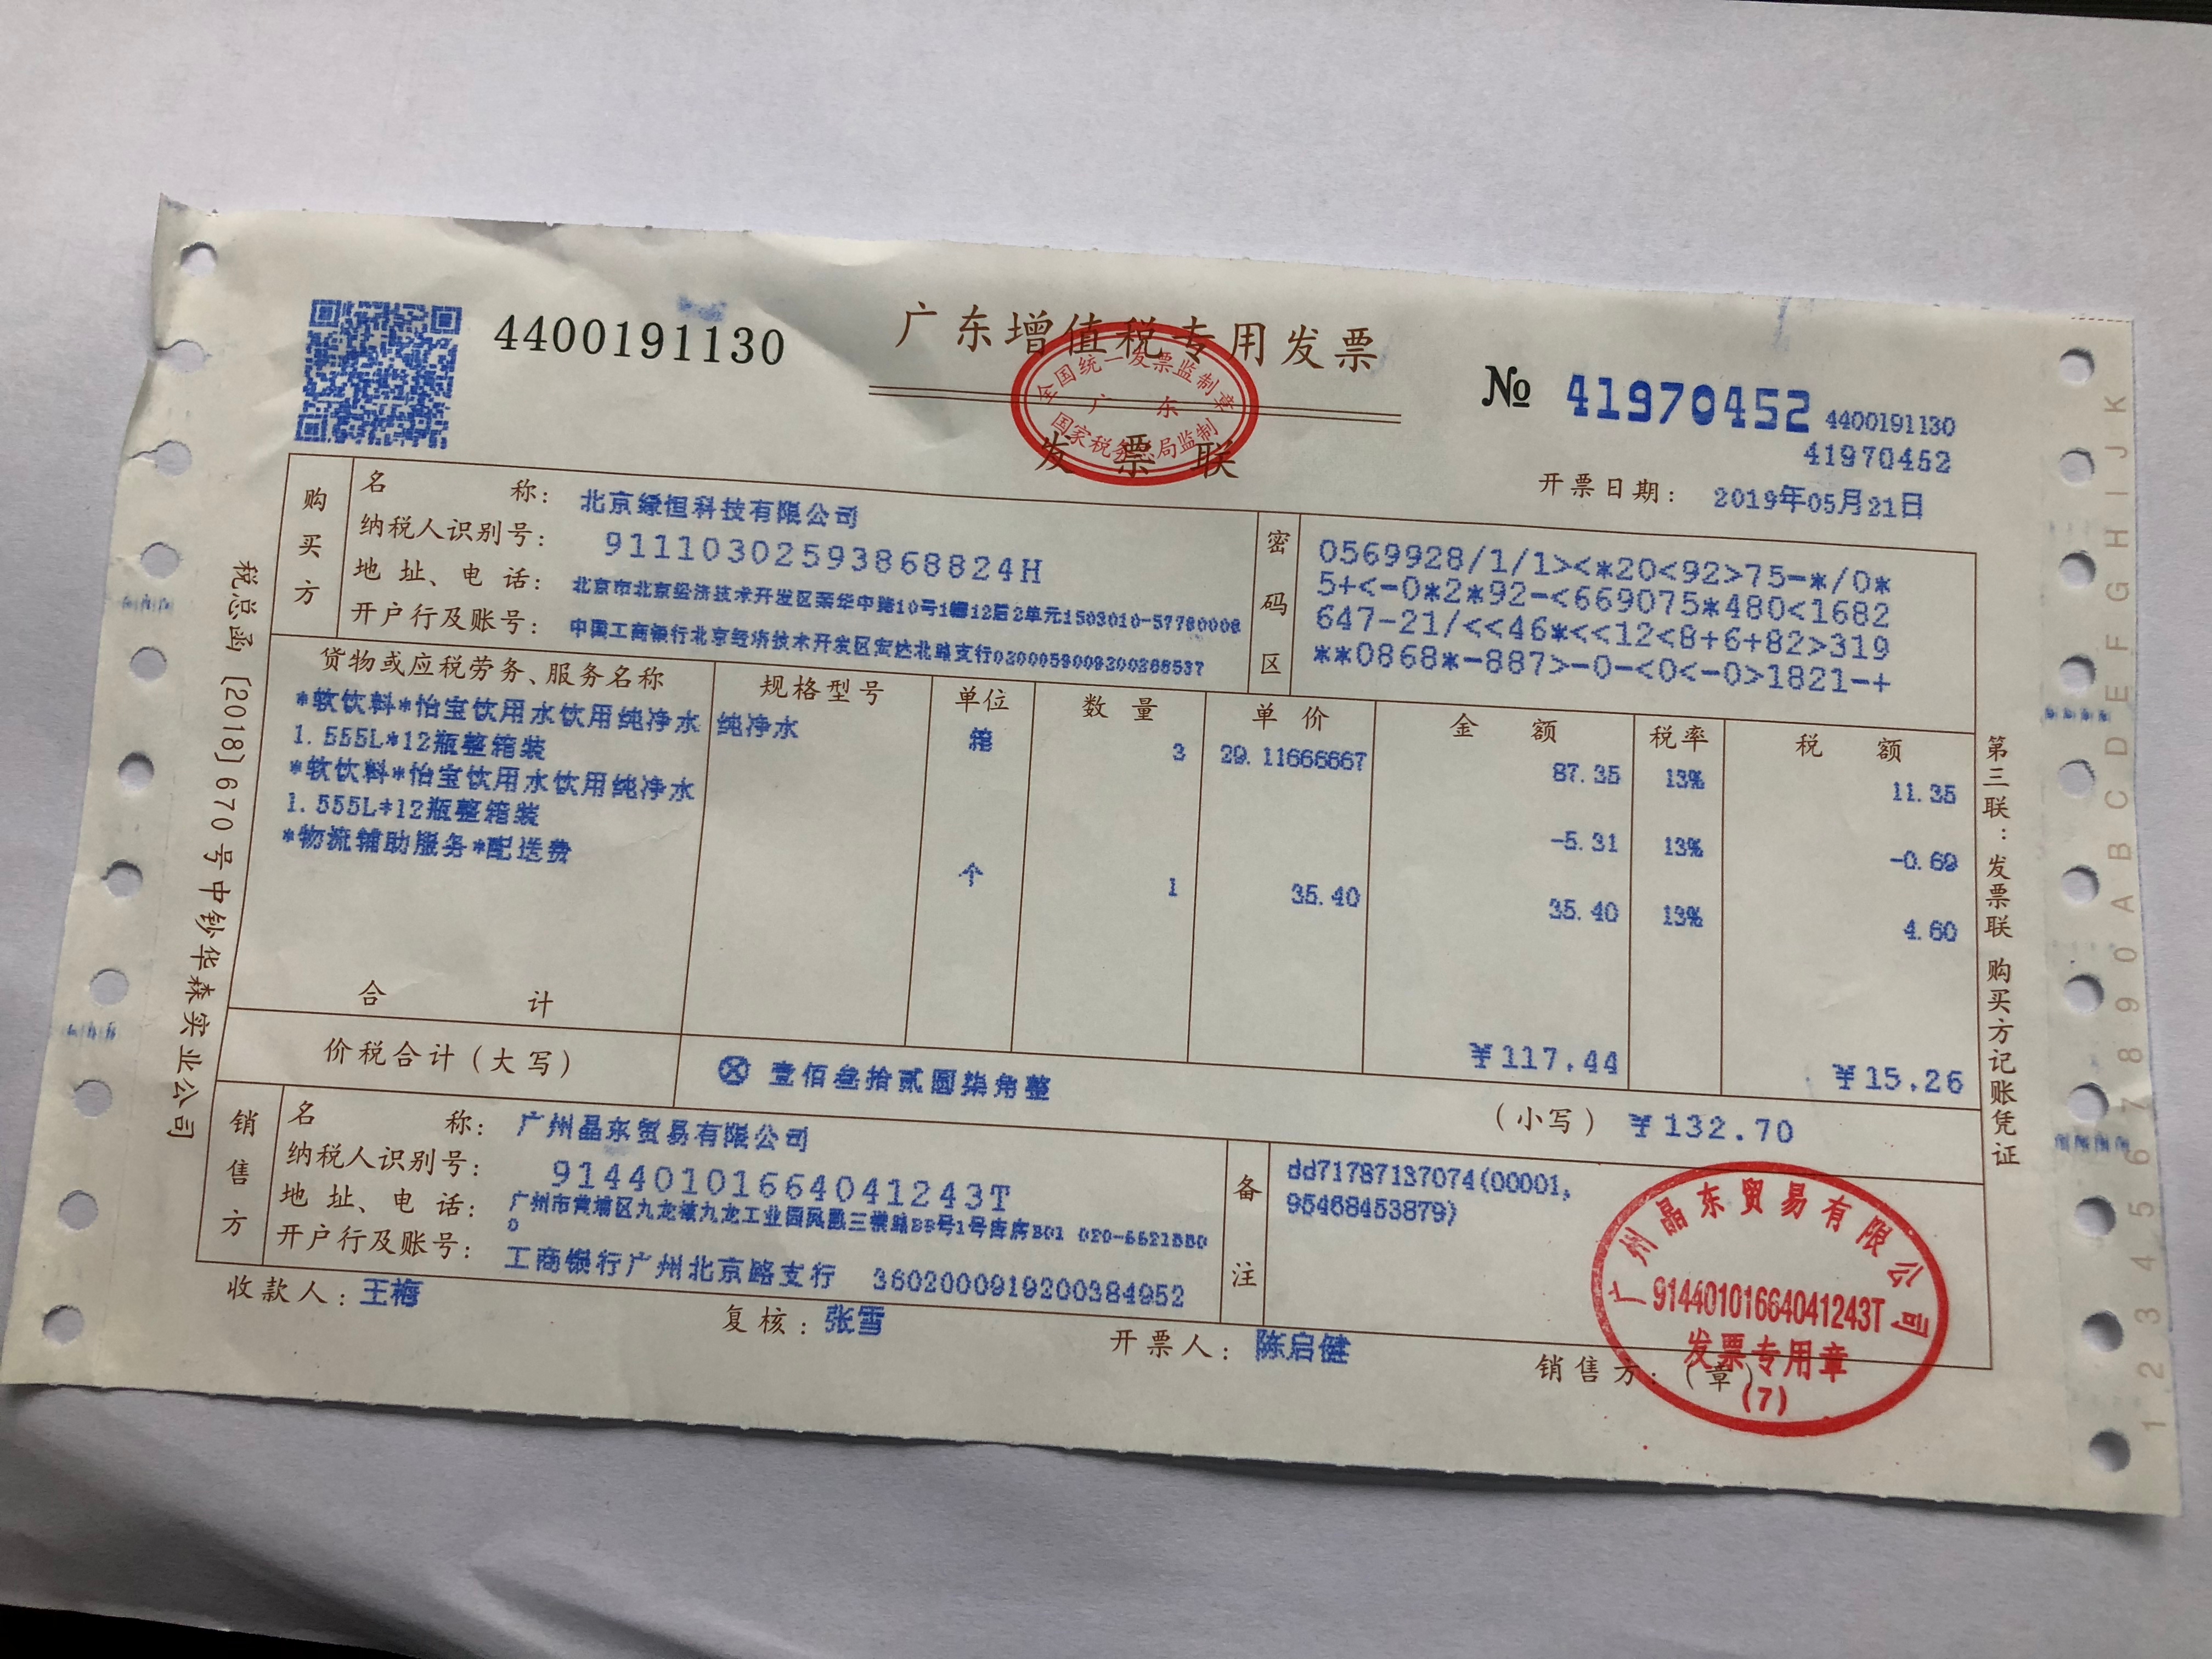 4400191130
广东增值税专用发票
全国统一发票监制章
广 东
国家税务总局监制
发 票 联
№ 41970452
4400191130
41970452
开票日期： 2019年05月21日
购买方
名 称： 北京缐恒科技有限公司
纳税人识别号： 91110302593868824H
地 址、电 话： 北京市北京经济技术开发区荣华中路10号1幢12层2单元1503010-57780006
开户行及账号： 中国工商银行北京经济技术开发区宏达北路支行0200059009200268537
密码区
0569928/1/1><*20<92>75-*/0*
5+<-0*2*92-<669075*480<1682
647-21/<<46*<<12<8+6+82>319
**0868*-887>-0-<0<-0>1821-+
货物或应税劳务、服务名称 规格型号 单位 数 量 单 价 金 额 税率 税 额
*软饮料*怡宝饮用水饮用纯净水 纯净水 箱 3 29.11666667 87.35 13% 11.35
1.555L*12瓶整箱装
*软饮料*怡宝饮用水饮用纯净水 -5.31 13% -0.69
1.555L*12瓶整箱装
*物流辅助服务*配送费 个 1 35.40 35.40 13% 4.60
合 计 ¥117.44 ¥15.26
价税合计（大写） ⊗ 壹佰叁拾贰圆柒角整 （小写） ¥132.70
销售方
名 称： 广州晶东贸易有限公司
纳税人识别号： 91440101664041243T
地 址、电 话： 广州市黄埔区九龙镇九龙工业园凤凰三横路99号1号库房B01 020-6621880
0
开户行及账号： 工商银行广州北京路支行 3602000919200384952
备注
dd71787137074(00001,
95468453879)
收款人：王梅 复核：张雪 开票人：陈启健 销售方：（章）
广州晶东贸易有限公司
91440101664041243T
发票专用章
(7)
税总函［2018］670号中钞华森实业公司
第三联：发票联 购买方记账凭证
1 2 3 4 5 6 7 8 9 0 A B C D E F G H I J K